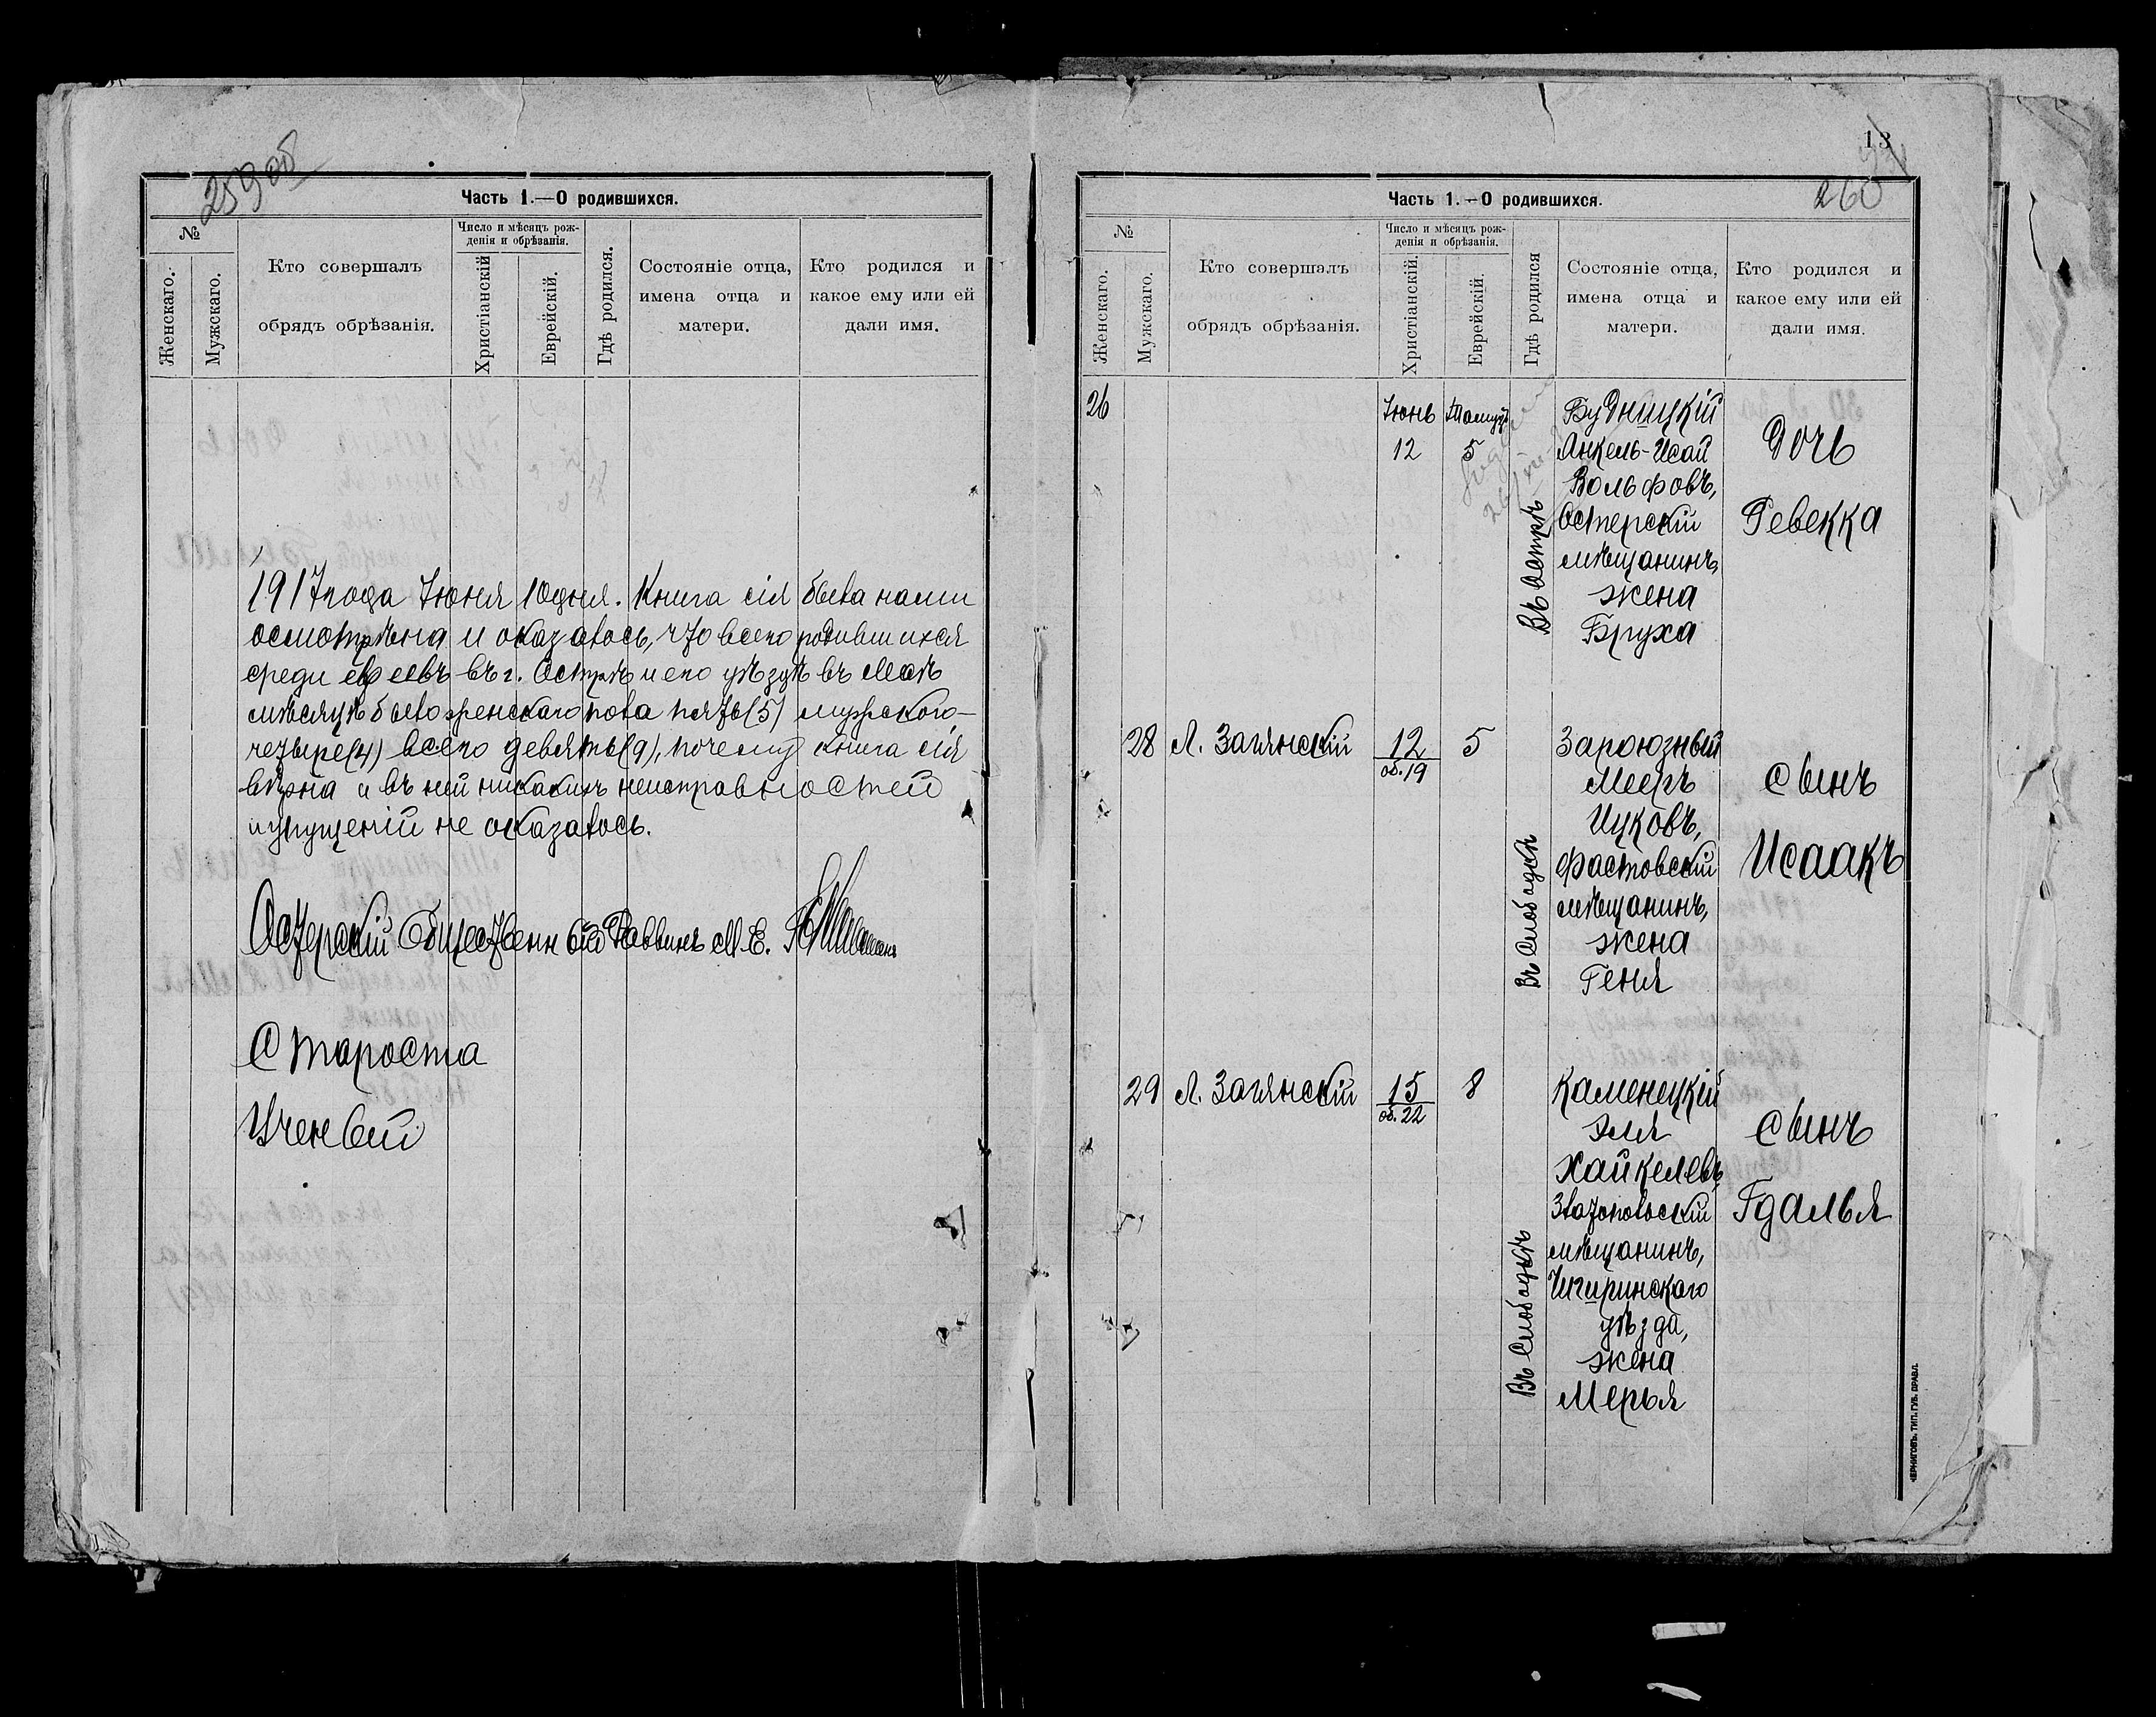 259 об
Часть 1.—О родившихся.
№
Женскаго.
Мужскаго.
Кто совершалъ
обрядъ обрѣзанія.
Число и мѣсяцъ рож-
денія и обрѣзанія.
Христіанскій
Еврейскій.
Гдѣ родился.
Состояніе отца,
имена отца и
матери.
Кто родился и
какое ему или ей
дали имя.
1917 года Іюня 10 дня. Книга сія была нами
осмотрѣна и оказалось, что всего родившихся
среди евреевъ въ г. Острѣ и его уѣздѣ въ Маѣ
мѣсяцѣ было женскаго пола пять (5) мужского-
четыре (4) всего девять (9), почему книга сія
вѣрна и въ ней никакихъ неисправностей
и упущеній не оказалось.
Остерскій Общественный Раввинъ М. Е.
Староста
Ученый
13
260
Часть 1.—О родившихся.
№
Женскаго.
Мужскаго.
Кто совершалъ
обрядъ обрѣзанія.
Число и мѣсяцъ рож-
денія и обрѣзанія.
Христіанскій.
Еврейскій.
Гдѣ родился
Состояніе отца,
имена отца и
матери.
Кто родился и
какое ему или ей
дали имя.
26
Іюнь
12
Тамузъ
5
Въ Острѣ
Будницкій
Анкель-Исай
Вольфовъ,
Остерскій
мѣщанинъ,
жена
Бруха
Дочь
Ревекка
28
Л. Загянскій
12
об. 19
5
Въ Слободкѣ
Зароюзный
Мееръ
Ицковъ,
Фастовскій
мѣщанинъ,
жена
Геня
Сынъ
Исаакъ
29
Л. Загянскій
15
об. 22
8
Въ Слободкѣ
Каменецкій
Эля
Хайкелевъ,
Златопольскій
мѣщанинъ,
Чигиринскаго
уѣзда,
жена
Мерья
Сынъ
Гдалья
ЧЕРНИГОВЪ. ТИП. ГУБ. ПРАВЛ.